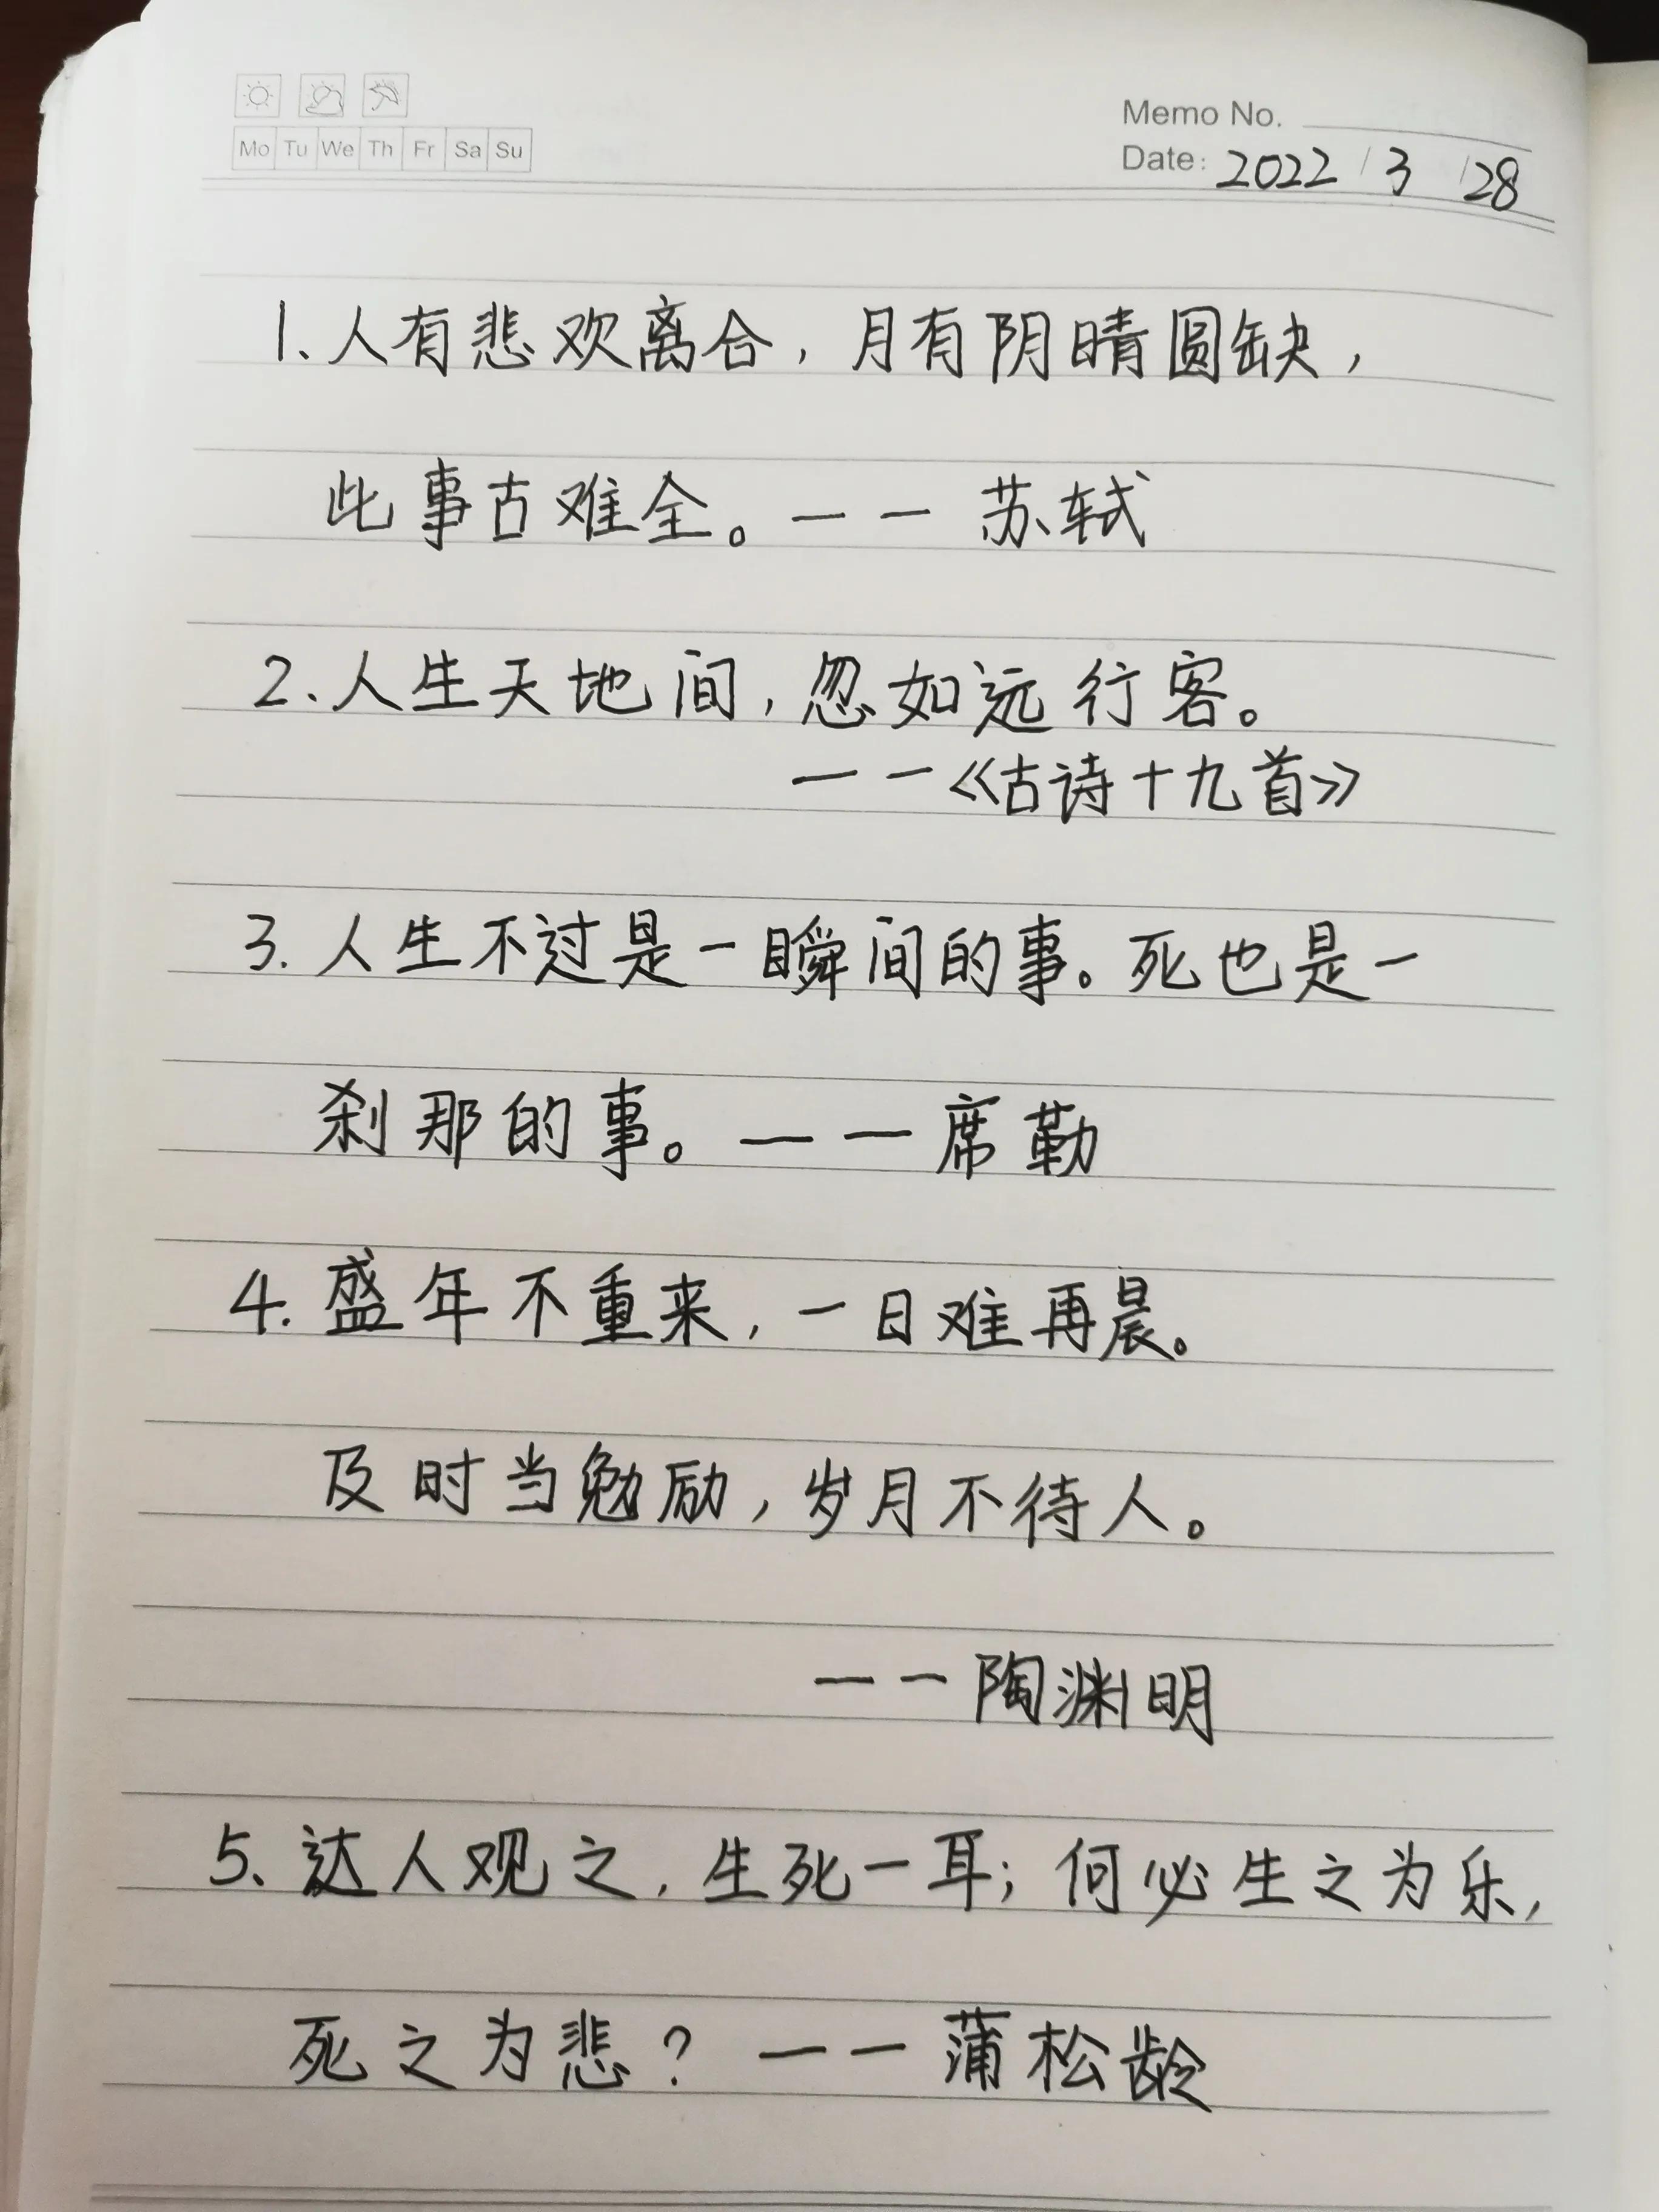 Mo Tu We Th Fr Sa Su
Memo No.
Date: 2022 / 3 / 28
1. 人有悲欢离合，月有阴晴圆缺，
此事古难全。——苏轼
2. 人生天地间，忽如远行客。
——《古诗十九首》
3. 人生不过是一瞬间的事。死也是一
刹那的事。——席勒
4. 盛年不重来，一日难再晨。
及时当勉励，岁月不待人。
——陶渊明
5. 达人观之，生死一耳；何必生之为乐，
死之为悲？——蒲松龄